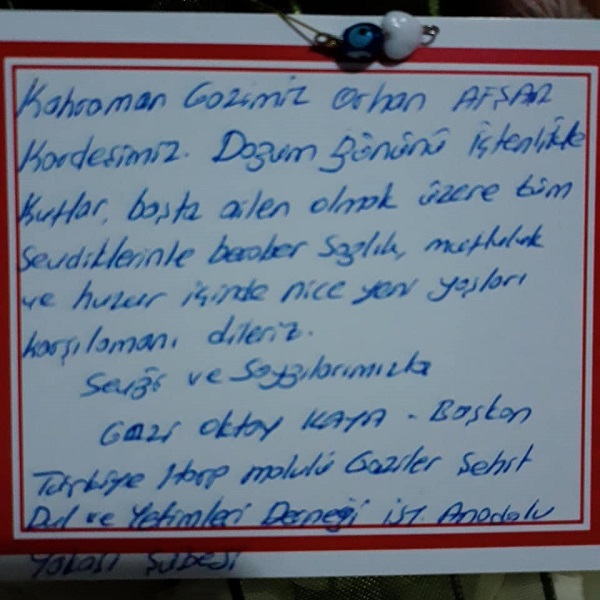 Kahraman Gazimiz Orhan AFŞAR
Kardeşimiz. Doğum gününü içtenlikle
Kutlar, başta ailen olmak üzere tüm
sevdiklerinle beraber sağlık, mutluluk
ve huzur içinde nice yeni yaşları
karşılamanı dileriz.
Sevgi ve Saygılarımızla
Gazi Oktay KAYA - Başkan
Türkiye Harp malulü Gaziler Şehit
Dul ve Yetimleri Derneği İST. Anadolu
Yakası Şubesi